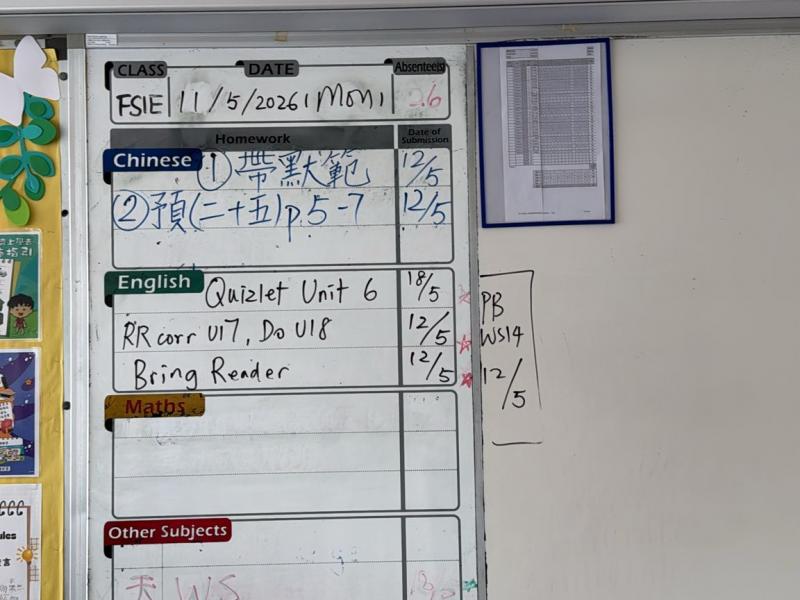 CLASS DATE Absentee(s)
FSIE 11/5/2026 (Mon) 26
Homework Date of Submission
Chinese ①帶默範 12/5
②預(二十五)p.5-7 12/5
English Quizlet Unit 6 18/5
RR corr U17, Do U18 12/5
Bring Reader 12/5
PB
WS14
12/5
Maths
Other Subjects
WS